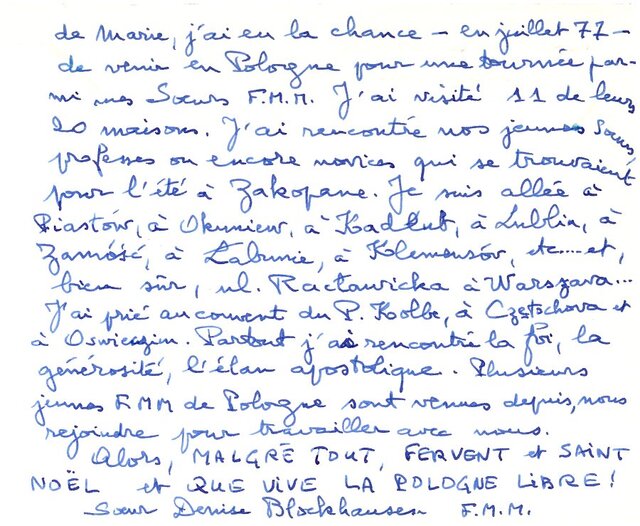 de Marie, j'ai eu la chance – en juillet 77 –
de venir en Pologne pour une tournée par-
mi nos Sœurs F.M.M. J'ai visité 11 de leurs
20 maisons. J'ai rencontré nos jeunes Sœurs,
professes ou encore novices qui se trouvaient
pour l'été à Zakopane. Je suis allée à
Piastów, à Okuniew, à Kadłub, à Lublin, à
Zamość, à Łabunie, à Klemensów, etc.... et,
bien sûr, ul. Racławicka à Warszava...
J'ai prié au couvent du P. Kolbe, à Częstochova et
à Oswienzim. Partout j'ai rencontré la foi, la
générosité, l'élan apostolique. Plusieurs
jeunes F.M.M de Pologne sont venues depuis, nous
rejoindre pour travailler avec nous.
Alors, MALGRÉ TOUT, FERVENT et SAINT
NOËL et QUE VIVE LA POLOGNE LIBRE !
Sœur Denise Blockhausen F.M.M.